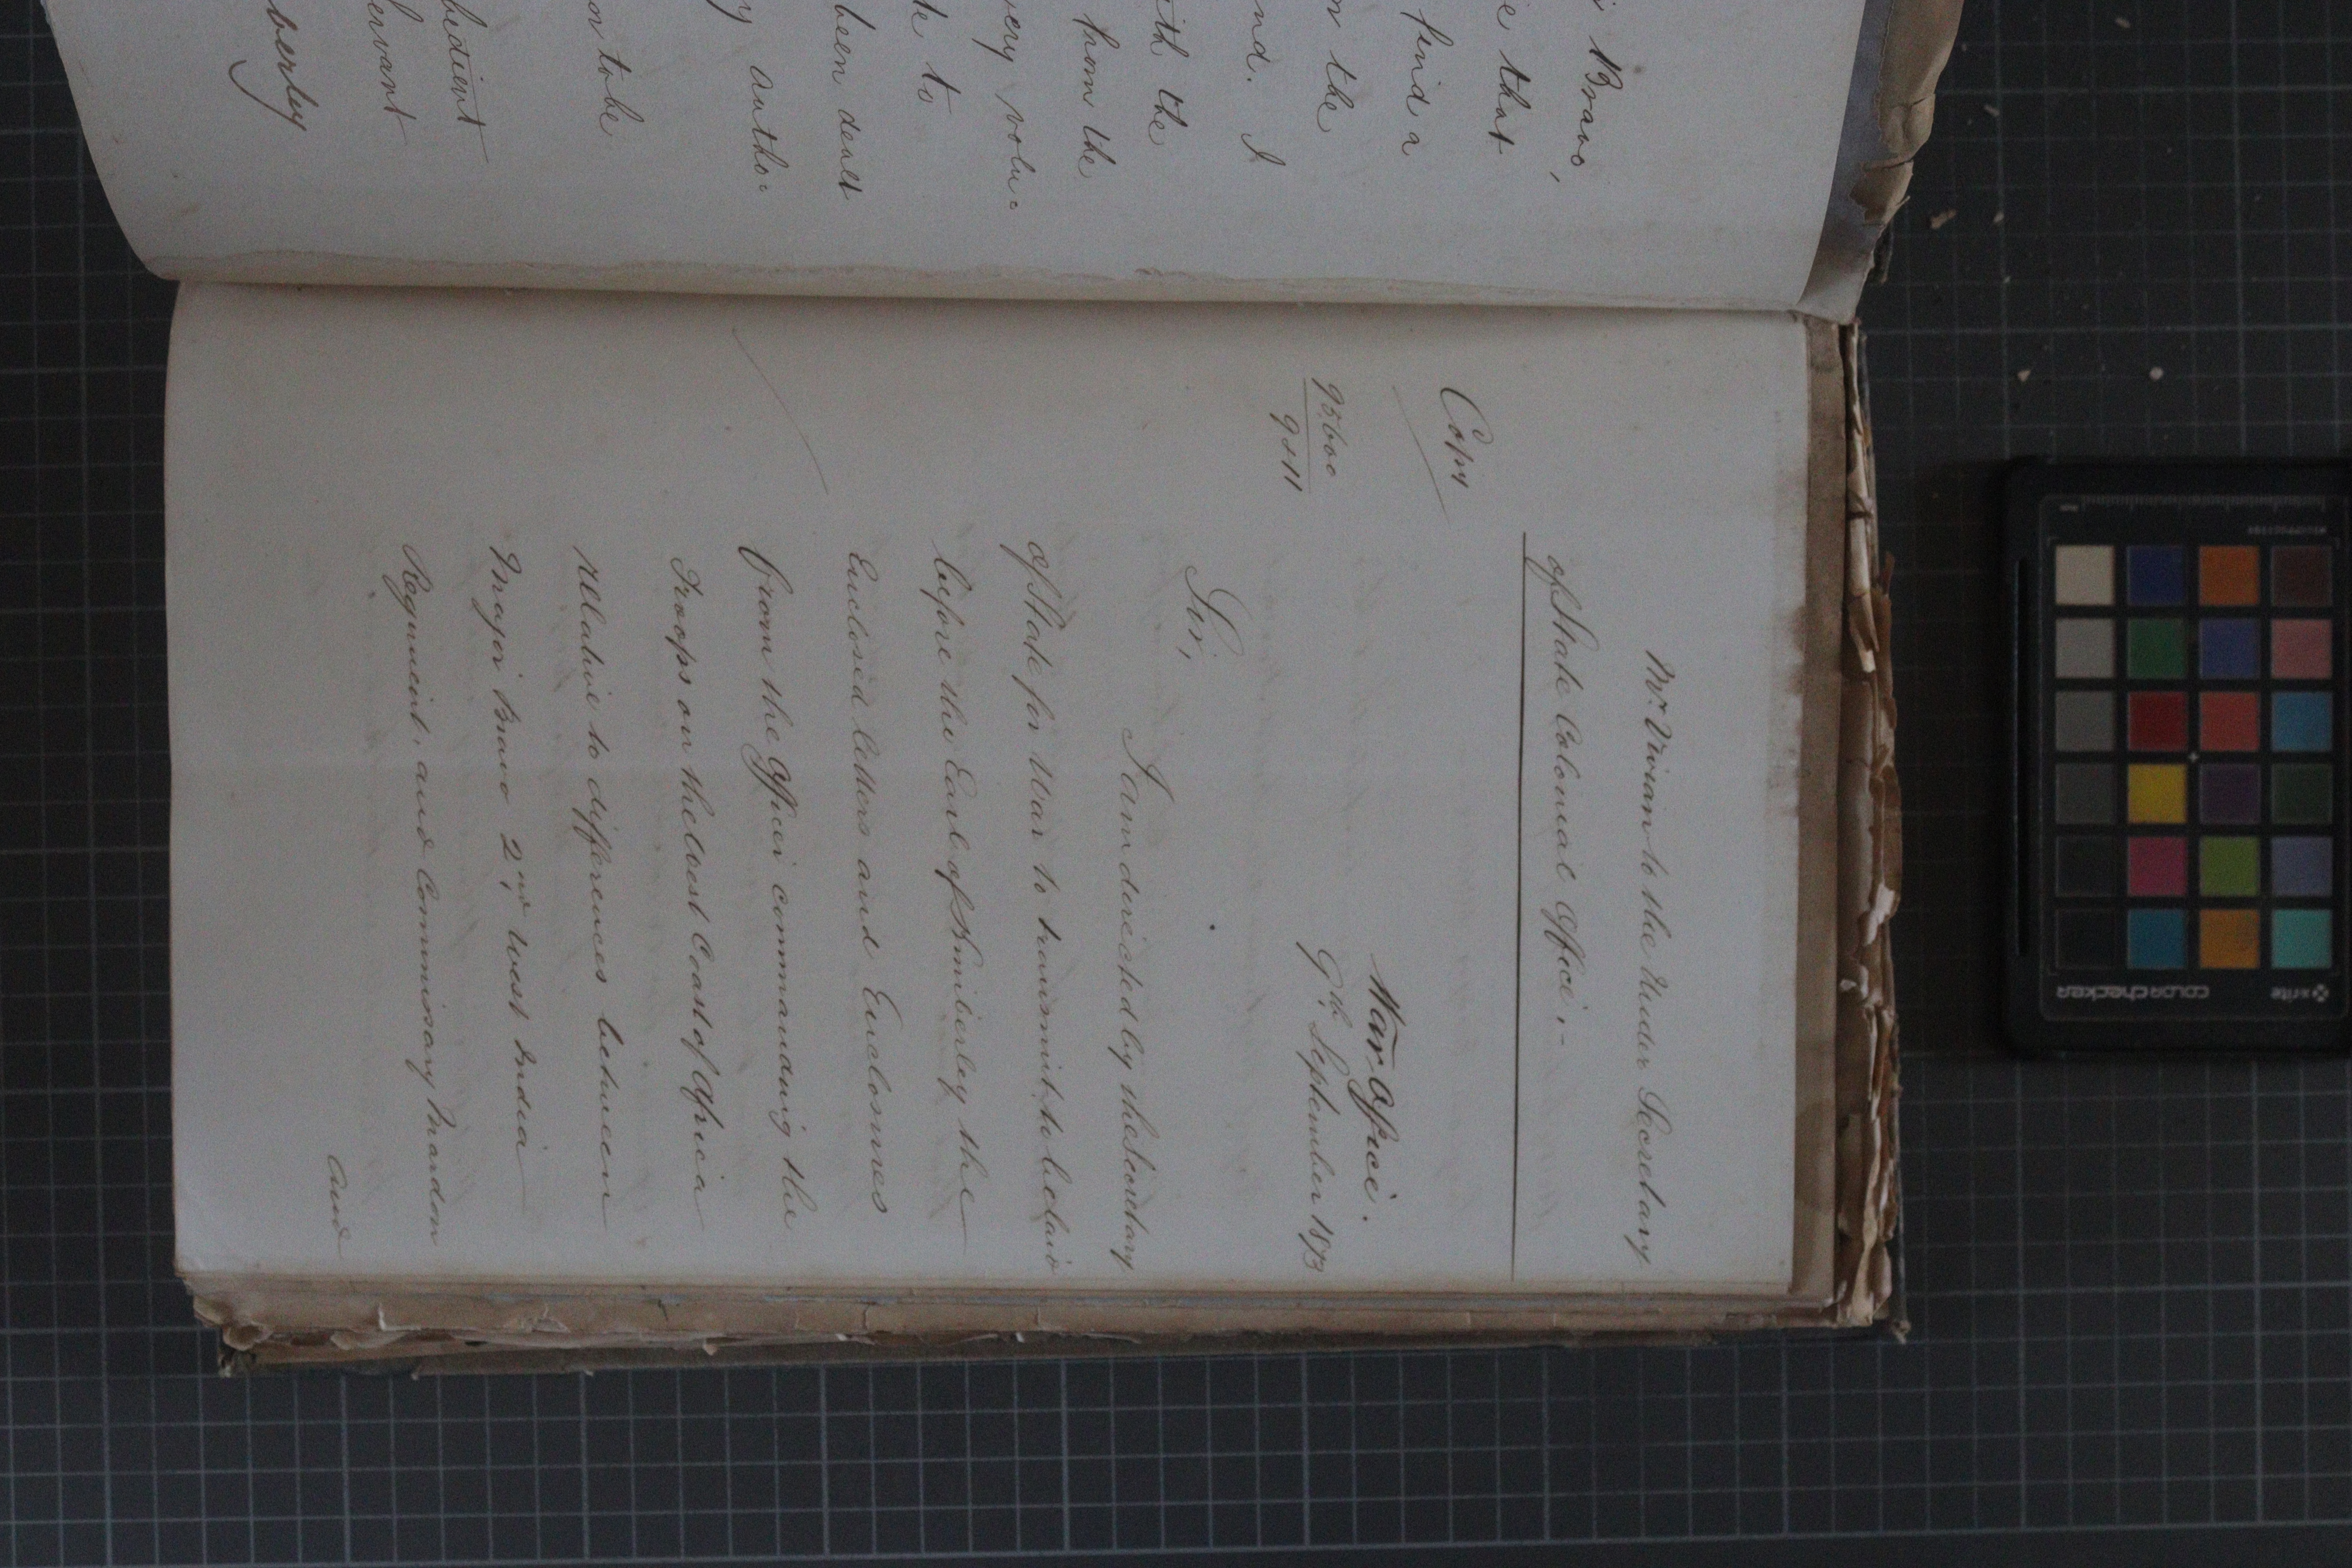 i Bravo,
e that
find a
n the
nd. I
ith the
from the
very volu=
te to
been dealt
y autho=
on to be
bedient
ervant
berley
Mr. Vivian to the Under Secretary
of State Colonial Office.-
Copy
War Office.
95600
9811
9th September 1873
Sir,
I am directed by the Secretary
of State for War to transmit to be laid
before the Earl of Kimberley the
Enclosed letters and Enclosures
from the Officer commanding the
Troops on the West Coast of Africa
relative to differences between
Major Bravo 2nd, West India
Regiment, and Commissary Marden
and